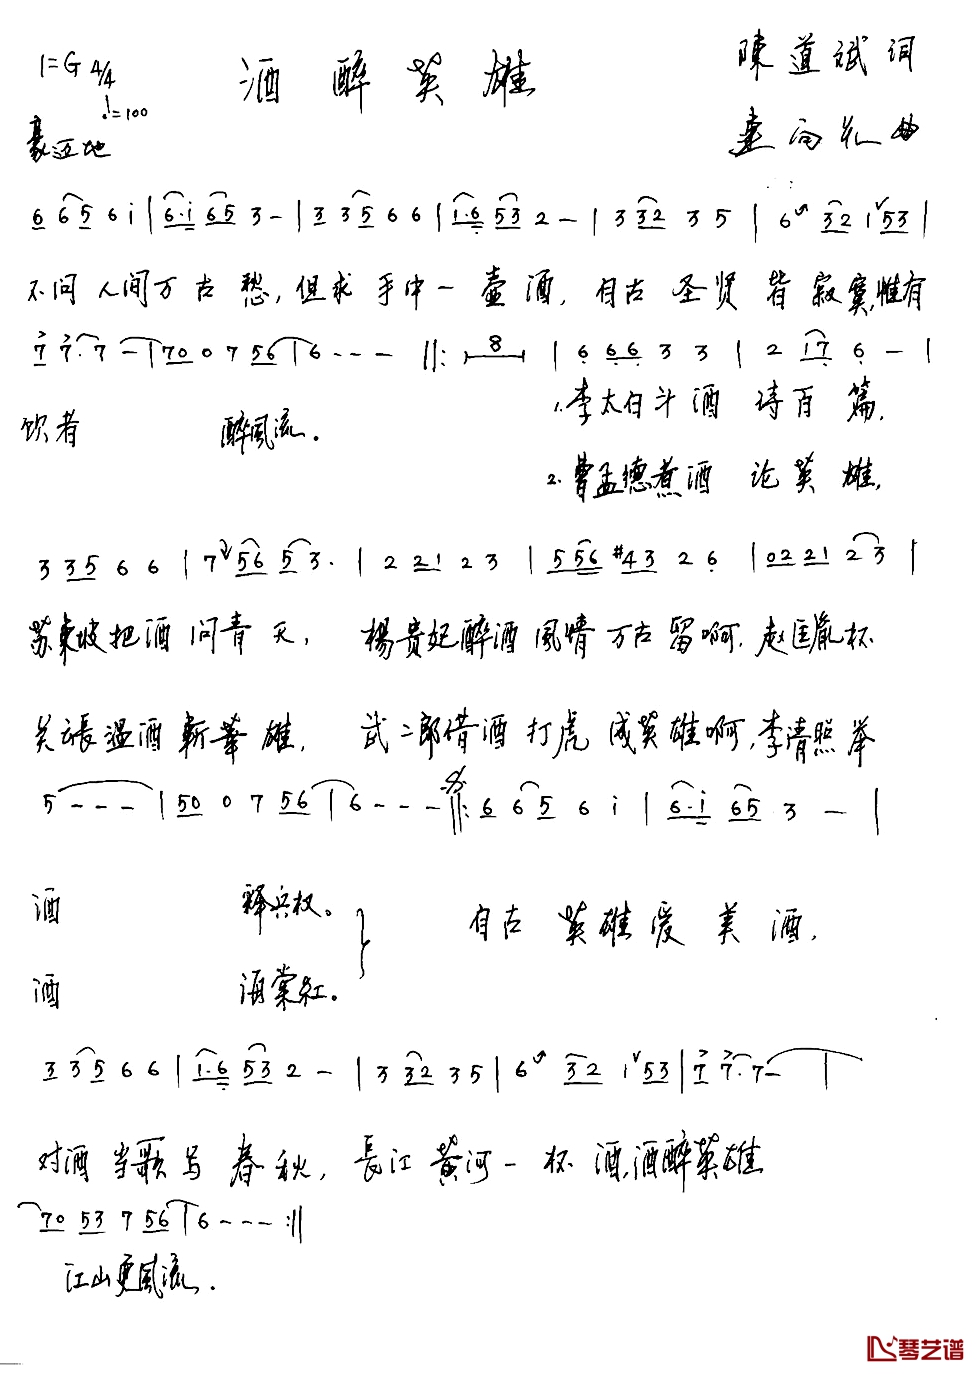 1=G 4/4
♩=100
酒醉英雄
陳道斌 词
曲
豪迈地
6 6 5 6 i | 6·i 6 5 3 - | 3 3 5 6 6 | 1·6 5 3 2 - | 3 3 2 3 5 | 6 3 2 1 5 3 |
不问人间万古愁,但求手中一壶酒,自古圣贤皆寂寞,惟有
7 7·7 - | 7 0 0 7 5 6 | 6 - - - ‖: 8 | 6 6 6 3 3 | 2 1 7 6 - |
饮者 醉風流.
1.李太白斗酒 诗百篇,
2.曹孟德煮酒 论英雄,
3 3 5 6 6 | 7 5 6 5 3· | 2 2 1 2 3 | 5 5 6 #4 3 2 6 | 0 2 2 2 1 2 3 |
苏東坡把酒问青天, 楊贵妃醉酒風情万古留啊,赵匡胤杯
关張温酒斬華雄, 武二郎借酒打虎成英雄啊,李清照举
5 - - - | 5 0 0 7 5 6 | 6 - - - ‖: 6 6 5 6 i | 6·i 6 5 3 - |
酒 释兵权。 自古英雄爱美酒,
酒 海棠紅。
3 3 5 6 6 | 1·6 5 3 2 - | 3 3 2 3 5 | 6 3 2 1 5 3 | 7 7·7 - |
对酒当歌写春秋, 長江黄河一杯酒,酒醉英雄
7 0 5 3 7 5 6 | 6 - - - :‖
江山更風流.
琴艺谱